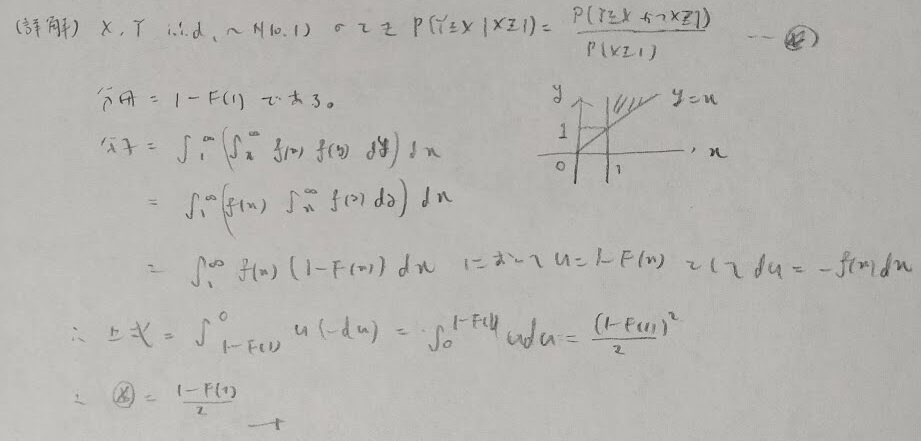 (詳解) X, Y i.i.d. ~ N(0.1) のとき P(Y≧X | X≧1) = P(Y≧X かつ X≧1) / P(X≧1) --- ※)
分母 = 1-F(1) である。
y y=x 1 0 1 x
分子 = ∫_1^∞ (∫_x^∞ f(x) f(y) dy) dx
= ∫_1^∞ (f(x) ∫_x^∞ f(y) dy) dx
= ∫_1^∞ f(x) (1-F(x)) dx において u=1-F(x) として du = -f(x)dx
∴ 上式 = ∫_{1-F(1)}^0 u(-du) = ∫_0^{1-F(1)} u du = (1-F(1))^2 / 2
∴ ※ = 1-F(1) / 2